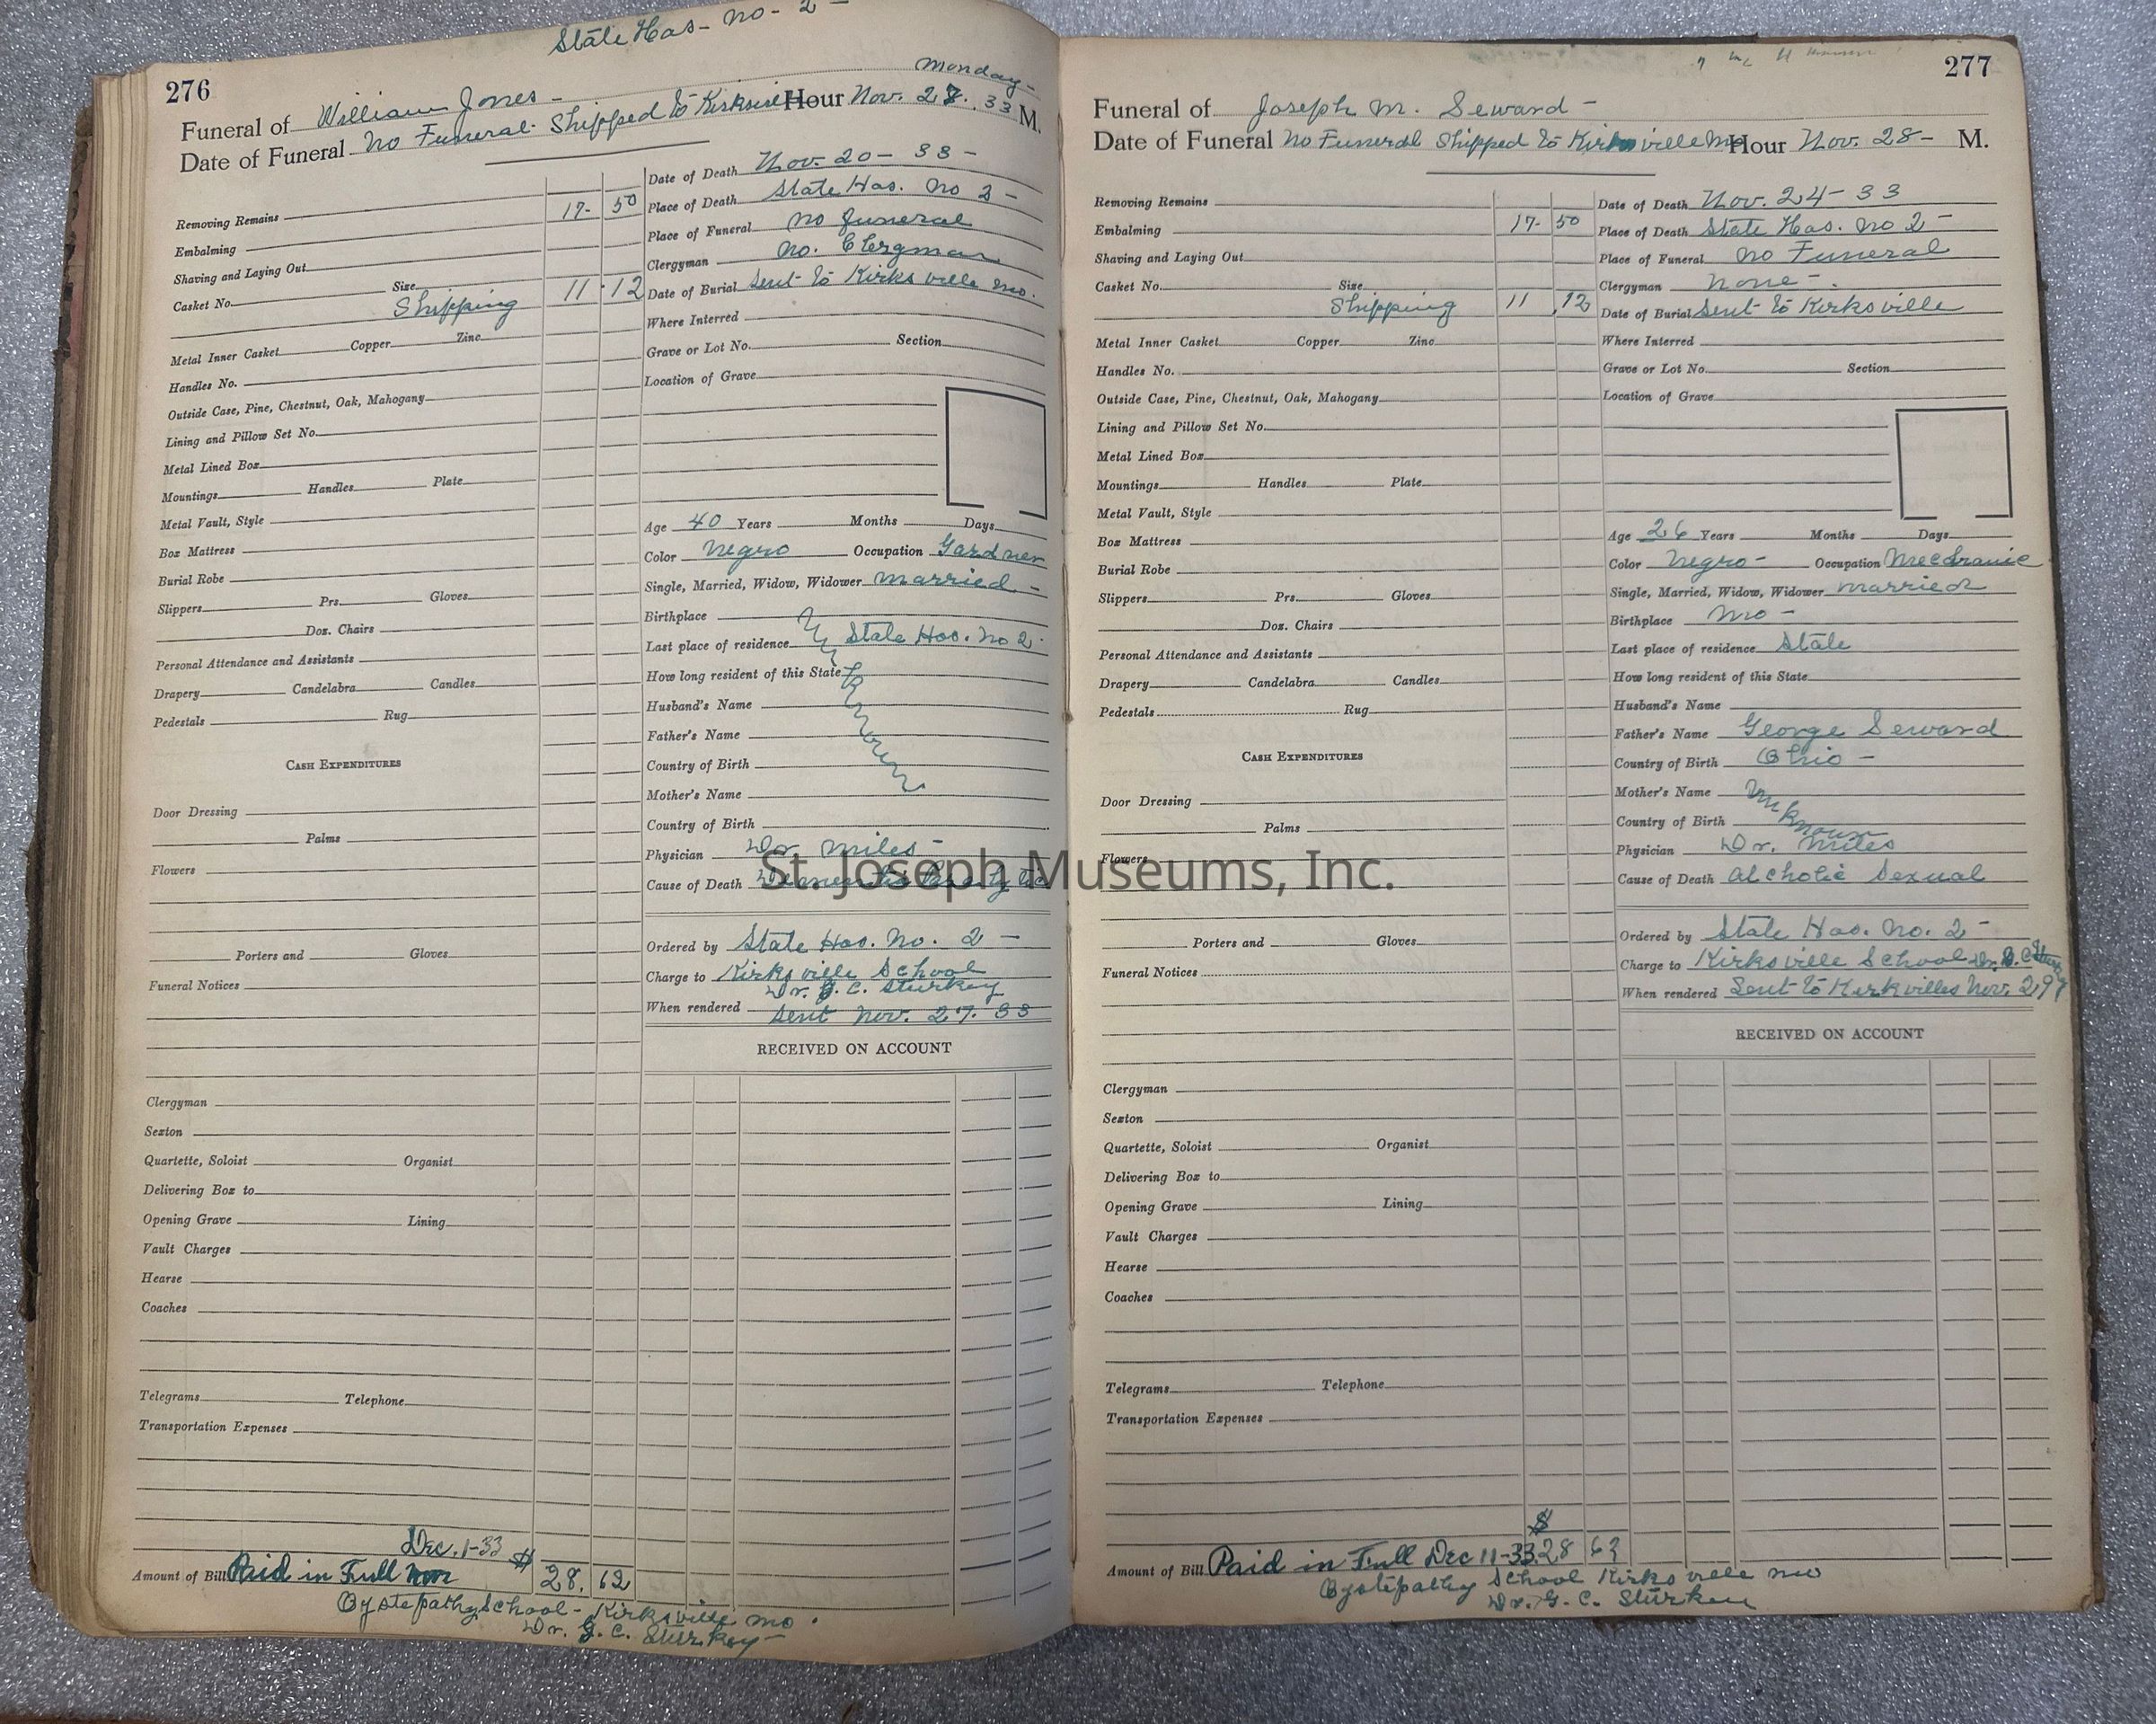 State Hos- no- 2-
276
monday-
Funeral of William Jones -
Date of Funeral no Funeral. Shipped to Kirksvil Hour Nov. 27. 33 M.
Date of Death Nov. 20- 33 -
Removing Remains 17- 50 Place of Death State Hos. no 2-
Embalming Place of Funeral no funeral
Shaving and Laying Out Clergyman no. Clergman
Casket No. Size Shipping 11 . 12 Date of Burial Sent to Kirksville mo.
Where Interred
Metal Inner Casket Copper Zinc
Grave or Lot No. Section
Handles No.
Location of Grave
Outside Case, Pine, Chestnut, Oak, Mahogany
Lining and Pillow Set No.
Metal Lined Box
Mountings Handles Plate
Metal Vault, Style
Age 40 Years Months Days
Box Mattress
Color Negro Occupation Gardner
Burial Robe
Single, Married, Widow, Widower married -
Slippers Prs. Gloves
Birthplace Unknown
Doz. Chairs
Last place of residence State Hos. no 2.
Personal Attendance and Assistants
How long resident of this State
Drapery Candelabra Candles
Husband's Name
Pedestals Rug
Father's Name
CASH EXPENDITURES
Country of Birth
Mother's Name
Door Dressing
Country of Birth
Palms
Physician Dr. miles-
Flowers
Cause of Death
Ordered by State Hos. No. 2 -
Porters and Gloves
Charge to Kirksville School
Dr. G. C. Sturkey
Funeral Notices
When rendered Sent Nov. 27. 33
RECEIVED ON ACCOUNT
Clergyman
Sexton
Quartette, Soloist Organist
Delivering Box to
Opening Grave Lining
Vault Charges
Hearse
Coaches
Telegrams Telephone
Transportation Expenses
Dec. 1-33
Amount of Bill Paid in Full $ 28. 62
Oystepathy School - Kirksville mo.
Dr. G. C. Sturkey-
277
Funeral of Joseph M. Seward -
Date of Funeral no Funeral Shipped to Kirksville Mo Hour Nov. 28- M.
Removing Remains Date of Death Nov. 24- 33
Embalming 17- 50 Place of Death State Hos. no 2-
Shaving and Laying Out Place of Funeral no Funeral
Casket No. Size Clergyman none-.
Shipping 11 .12 Date of Burial Sent to Kirksville
Metal Inner Casket Copper Zinc Where Interred
Handles No. Grave or Lot No. Section
Outside Case, Pine, Chestnut, Oak, Mahogany Location of Grave
Lining and Pillow Set No.
Metal Lined Box
Mountings Handles Plate
Metal Vault, Style
Box Mattress Age 26 Years Months Days
Burial Robe Color Negro- Occupation Mechanic
Slippers Prs. Gloves Single, Married, Widow, Widower married
Doz. Chairs Birthplace Mo-
Personal Attendance and Assistants Last place of residence State
Drapery Candelabra Candles How long resident of this State
Pedestals Rug Husband's Name
Father's Name George Seward
CASH EXPENDITURES Country of Birth Ohio -
Door Dressing Mother's Name Unknown
Palms Country of Birth
Flowers Physician Dr. Miles
Cause of Death Alcholic Sexual
Ordered by State Hos. No. 2-
Porters and Gloves
Charge to Kirksville School
Funeral Notices
When rendered Sent to Kirkvilles Nov. 29
RECEIVED ON ACCOUNT
Clergyman
Sexton
Quartette, Soloist Organist
Delivering Box to
Opening Grave Lining
Vault Charges
Hearse
Coaches
Telegrams Telephone
Transportation Expenses
$
Amount of Bill Paid in Full Dec 11-33 28 62
Oystepathy School Kirksville mo
Dr. G. C. Sturkey
St. Joseph Museums, Inc.